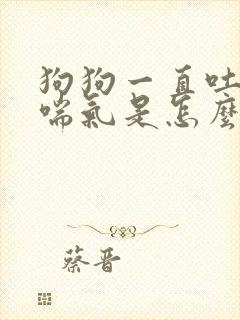 狗狗一直吐
喘氣是怎麼
蔡晋